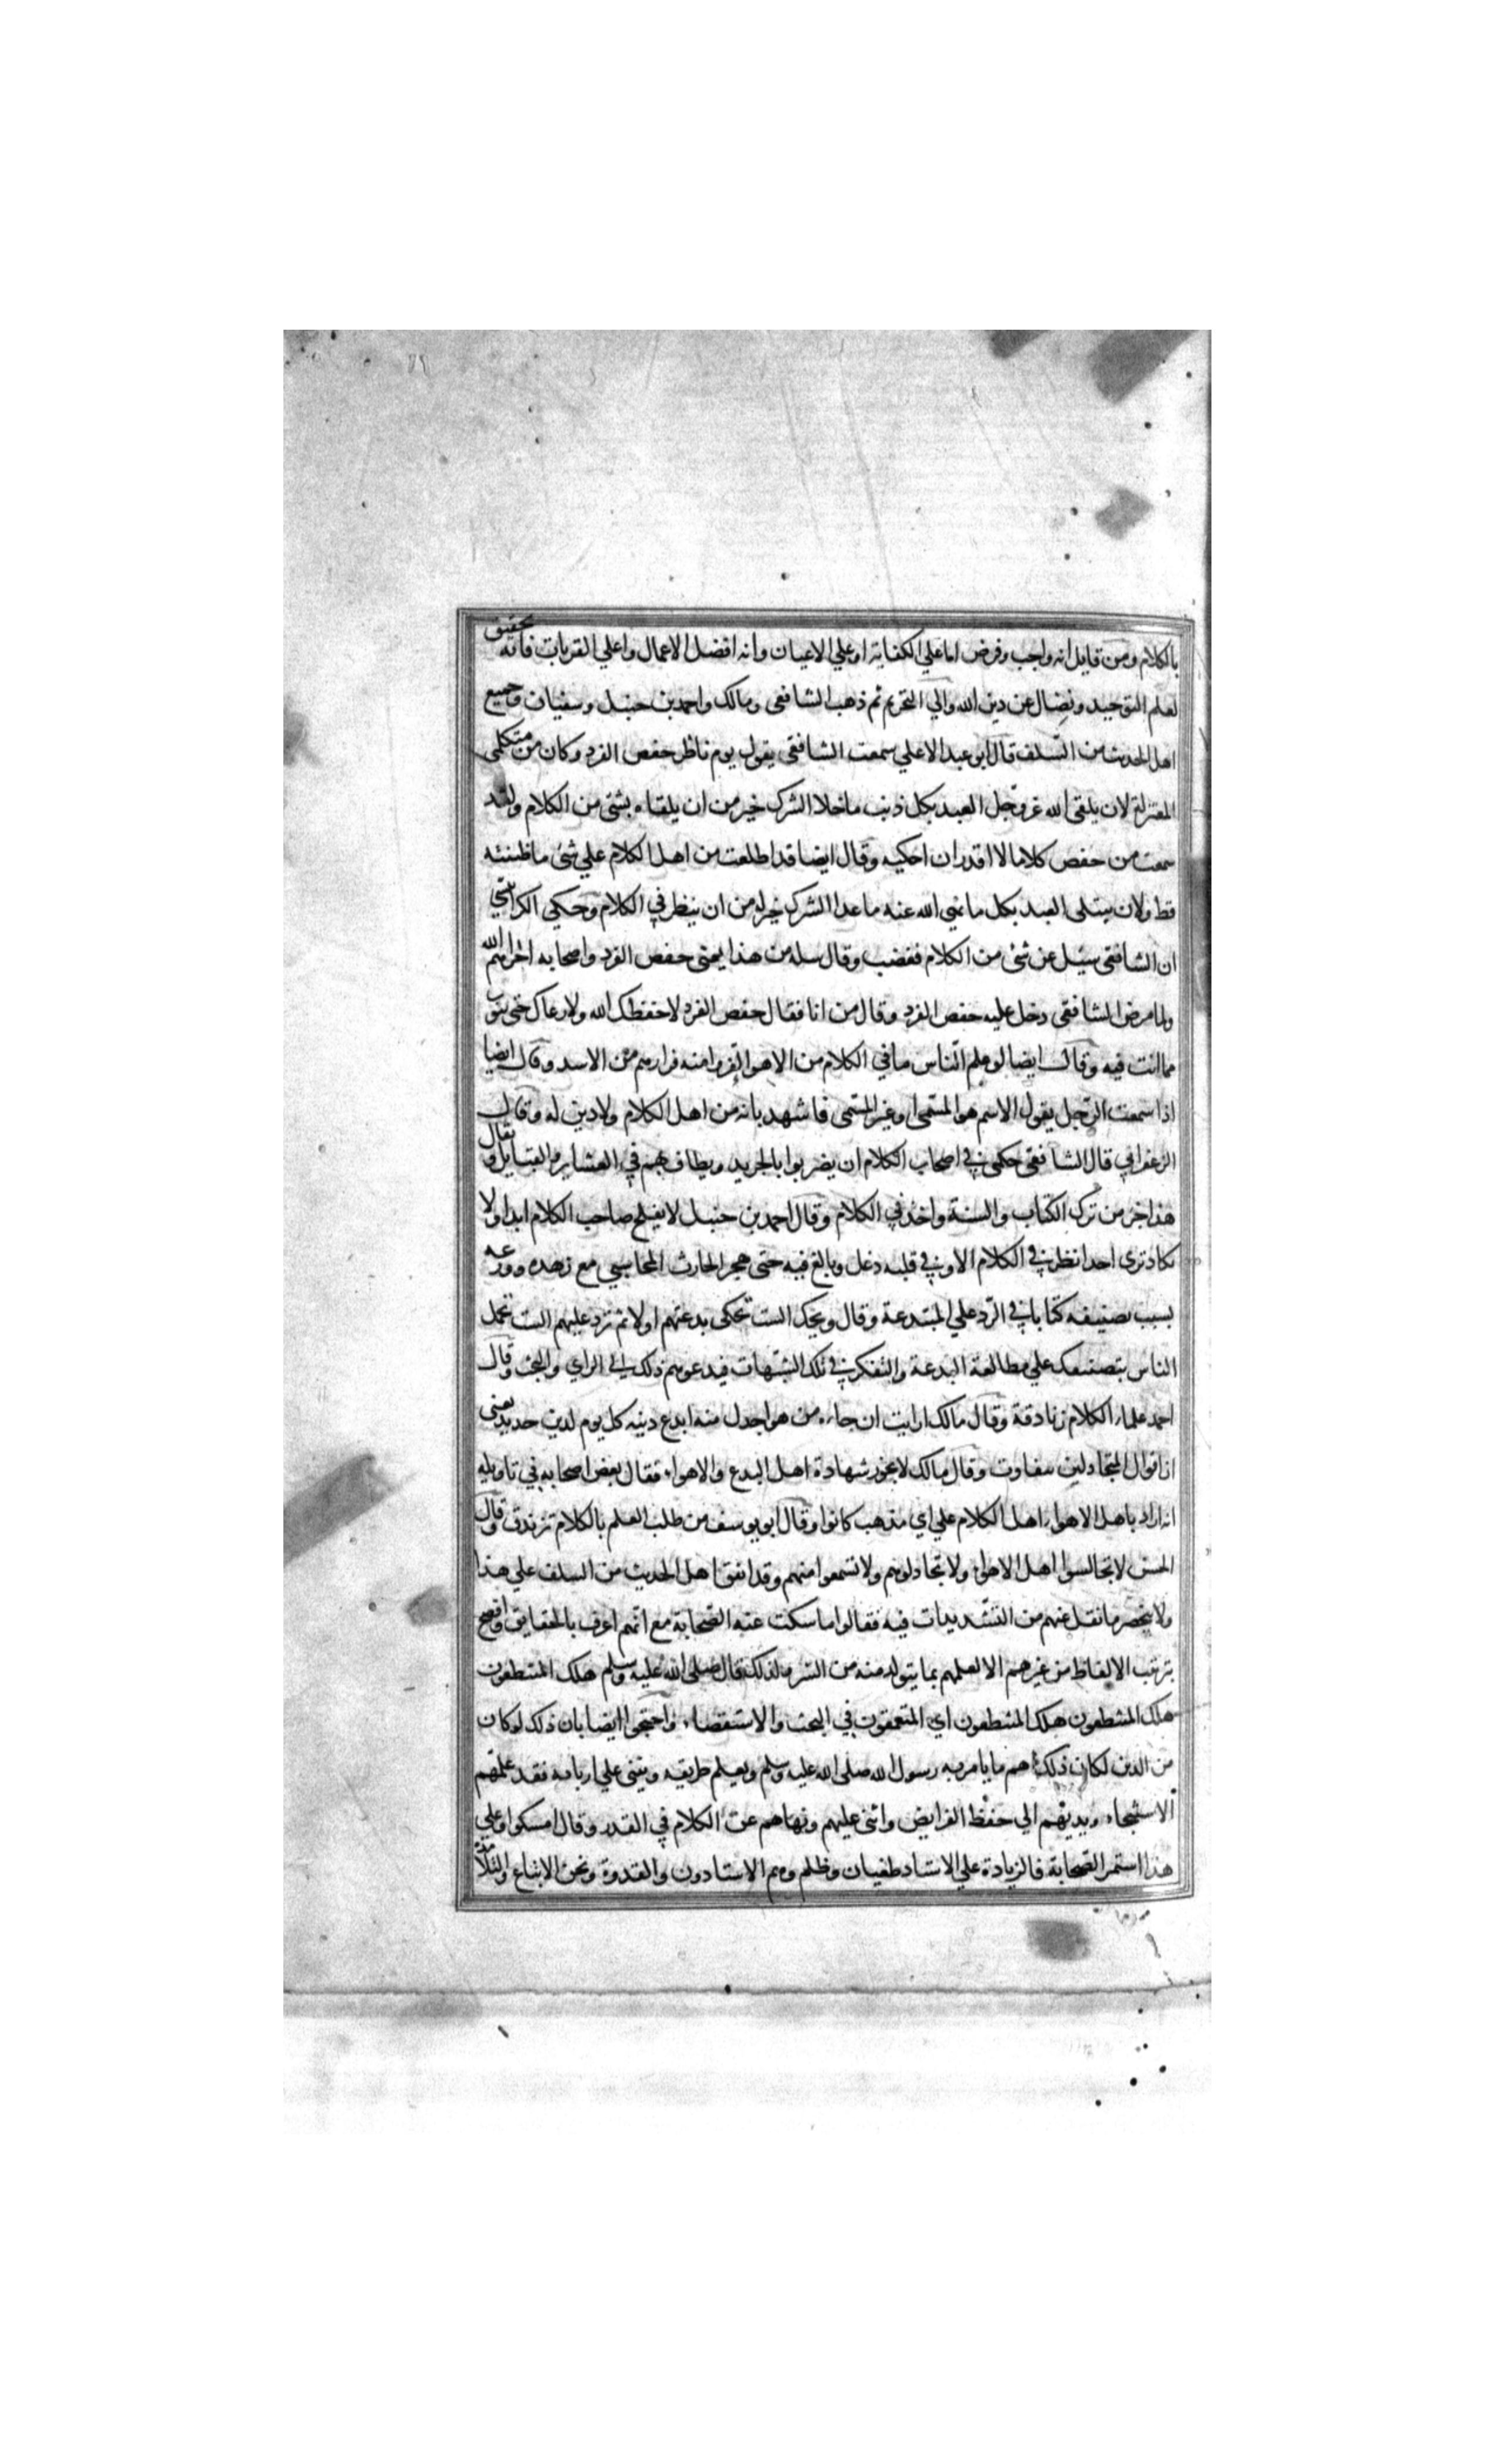 بالكلام ومن قايل انه واجب وفرض اما علي الكفاية او علي الاعيان وانه افضل الاعمال واعلي القربات فانه تحقيق
لعلم التوحيد ونضال عن دين الله والي التحريم ثم ذهب الشافعى ومالك واحمد بن حنبل وسفيان وجميع
اهل الحديث من السلف قال ابو عبد الاعلي سمعت الشافعى يقول يوم ناظر حفص الفرد وكان من متكلمى
المعتزلة لان يلقى الله عز وجل العبد بكل ذنب ما خلا الشرك خير من ان يلقاه بشئ من الكلام ولقد
سمعت من حفص كلاما لا اقدر ان احكيه وقال ايضا قد اطلعت من اهل الكلام علي شئ ما ظننته
قط ولان يبتلى العبد بكل ما نهي الله عنه ما عدا الشرك خير له من ان ينظر في الكلام وحكي الكرابيسي
ان الشافعى سئيل عن شئ من الكلام فغضب وقال سله من هذا يعنى حفص الفرد واصحابه اخزاهم الله
ولما مرض الشافعى دخل عليه حفص الفرد وقال من انا فقال حفص الفرد لا حفظك الله ولا رعاك حتى تتوب
مما انت فيه وقال ايضا لو علم الناس ما في الكلام من الاهوا لفروا منه فرارهم من الاسد وقال ايضا
اذا سمعت الرجل يقول الاسم هو المسمى او غير المسمى فاشهد بانه من اهل الكلام ولا دين له وقال
الزعفراني قال الشافعى حكمى في اصحاب الكلام ان يضربوا بالجريد ويطاف بهم في العشاير والقبايل ويقال
هذا جزا من ترك الكتاب والسنة واخذ في الكلام وقال احمد بن حنبل لا يفلح صاحب الكلام ابدا ولا
تكاد ترى احدا نظر في الكلام الا وفي قلبه دغل وبالغ فيه حتى هجر الحارث المحاسبي مع زهده وورعه
بسبب تصنيفه كتابا في الرد علي المبتدعة وقال ويحك الست تحكى بدعتهم اولا ثم ترد عليهم الست تحمل
الناس بتصنيفك علي مطالعة البدعة والتفكر في تلك الشبهات فيدعوهم ذلك الى الراي والبحث وقال
احمد علماء الكلام زنادقة وقال مالك ارايت ان جاءه من هو اجدل منه ايدع دينه كل يوم لدين جديد يعنى
ان اقوال المتجادلين تتفاوت وقال مالك لا يجوز شهادة اهل البدع والاهواء فقال بعض اصحابه في تاويله
انه اراد باهل الاهواء اهل الكلام علي اي مذهب كانوا وقال ابو يوسف من طلب العلم بالكلام تزندق وقال
الحسن لا تجالسوا اهل الاهواء ولا تجادلوهم ولا تسمعوا منهم وقد اتفق اهل الحديث من السلف علي هذا
ولا ينحصر ما نقل عنهم من التشديدات فيه فقالوا ما سكت عنه الصحابة مع انهم اعرف بالحقايق وافصح
بترتيب الالفاظ من غيرهم الا لعلمهم بما يتولد منه من الشر ولذلك قال صلى الله عليه وسلم هلك المتنطعون
هلك المتنطعون هلك المتنطعون اي المتعمقون في البحث والاستقصاء واحتجوا ايضا بان ذلك لو كان
من الدين لكان ذلك اهم ما يامر به رسول الله صلى الله عليه وسلم ويعلم طريقه ويثنى علي اربابه فقد علمهم
الاستنجاء ويدبهم الي حفظ الفرايض واثنى عليهم ونهاهم عن الكلام في القدر وقال امسكوا وعلي
هذا استمر الصحابة فالزيادة علي الاستاد طغيان وظلم وهم الاستادون والقدوة ونحن الاتباع والتلامذة